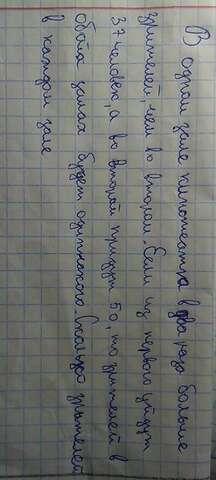 В одном зале кинотеатра в два раза больше
зрителей, чем во втором. Если из первого уйдут
37 человек, а во второй придут 50, то зрителей в
обоих залах будет одинаково. Сколько зрителей
в каждом зале